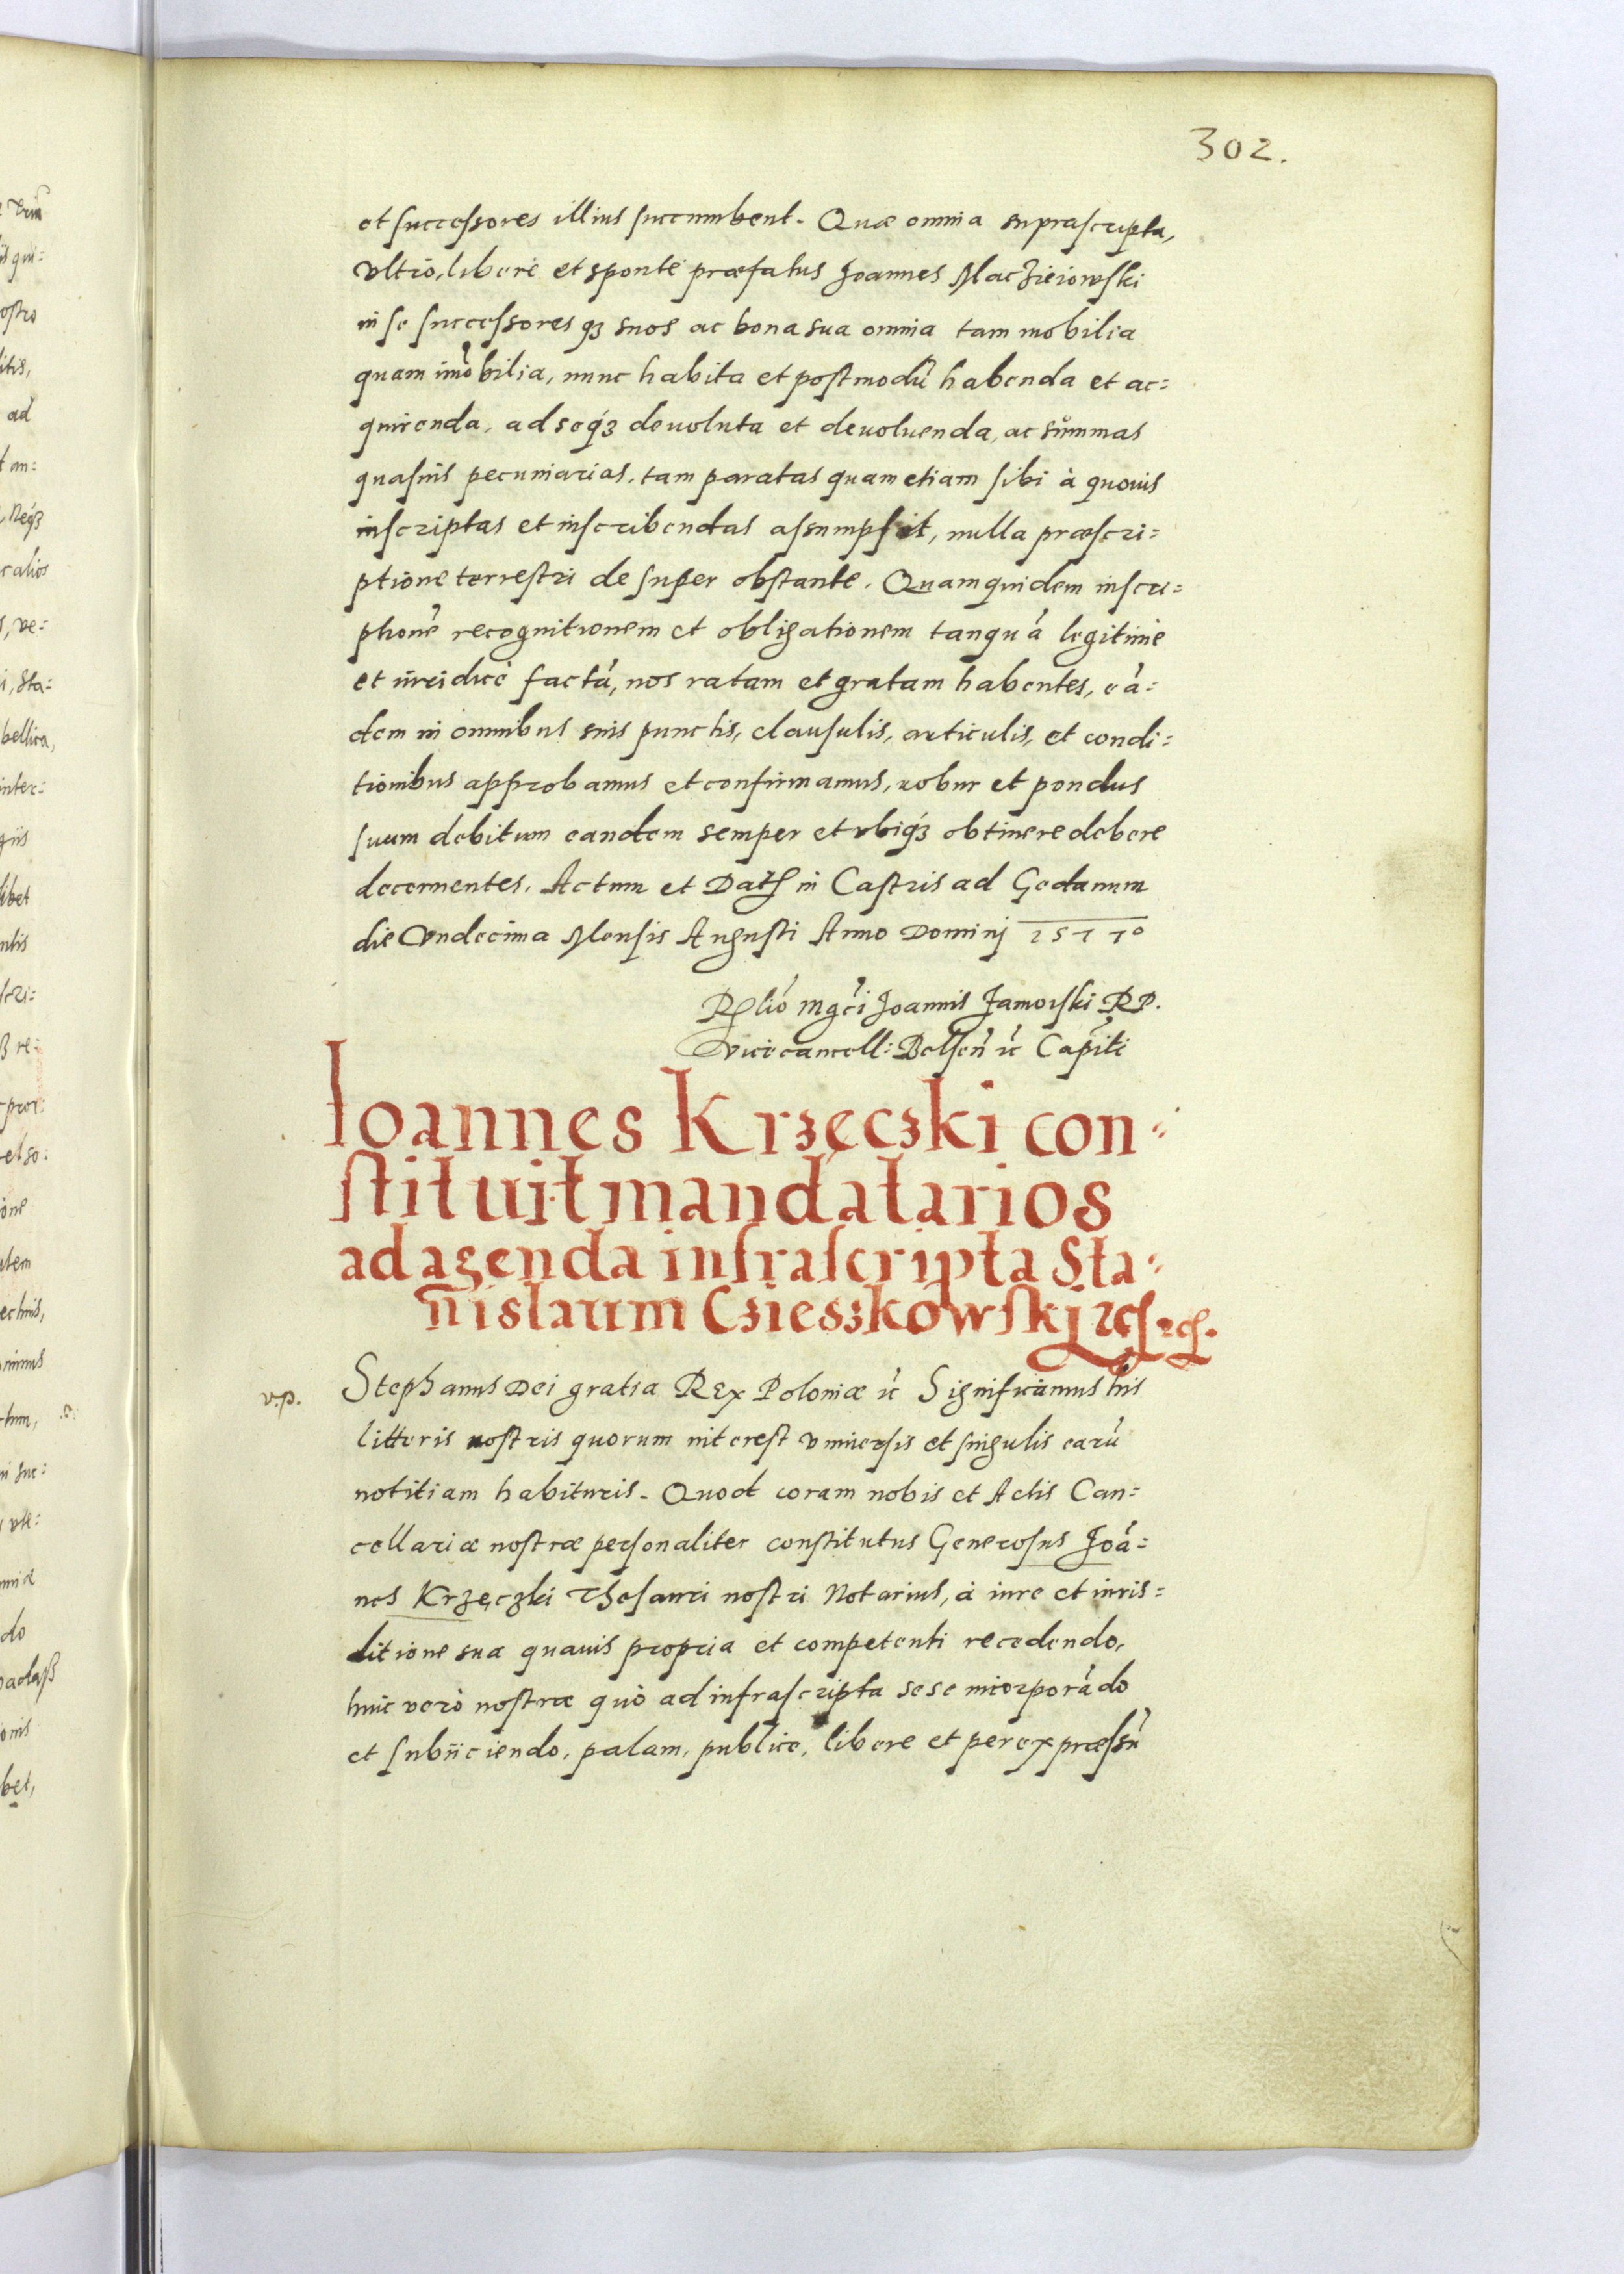 302.
et successores illius succumbent. Quæ omnia suprascripta,
vltrò, liberè et spontè præfatus Joannes Maczieiowski
in se successoresqꝫ suos ac bona sua omnia tam mobilia
quam im̃obilia, nunc habita et postmodũ habenda et ac=
quirenda, ad seqꝫ deuoluta et deuoluenda, ac summas
quasuis pecuniarias, tam paratas quam etiam sibi à quouis
inscriptas et inscribendas assumpsit, nulla præscri=
ptione terrestri desuper obstante. Quamquidem inscri=
ptionẽ recognitionem et obligationem tanquã legitimè
et iuridicè factã, nos ratam et gratam habentes, eã=
dem in omnibus suis punctis, clausulis, articulis, et condi=
tionibus approbamus et confirmamus, robur et pondus
suum debitum eandem semper et vbiqꝫ obtinere debere
decernentes. Actum et Dat in Castris ad Gedanum
die Vndecima Mensis Augusti Anno Dominj 1577º
Rlio Mgci Joannis Zamoiski RP.
vicecancell: Belsen̄ ꝛc Capitē
Ioannes Krzeczki con=
stituit mandatarios
ad agenda infrascripta Sta=
nislaum Czieszkowskj ꝛc ꝛc.
v.p.
Stephanus Dei gratia Rex Poloniæ ꝛc Significamus his
litteris nostris quorum interest vniuersis et singulis earũ
notitiam habituris. Quod coram nobis et Actis Can=
cellariæ nostræ personaliter constitutus Generosus Joã=
nes Krzęczki Thesauri nostri Notarius, à iure et iuris=
ditione sua quauis propria et competenti recedendo,
huic verò nostræ quò ad infrascripta sese incorporãdo
et subijciendo, palam, publicè, libere et per expræssũ